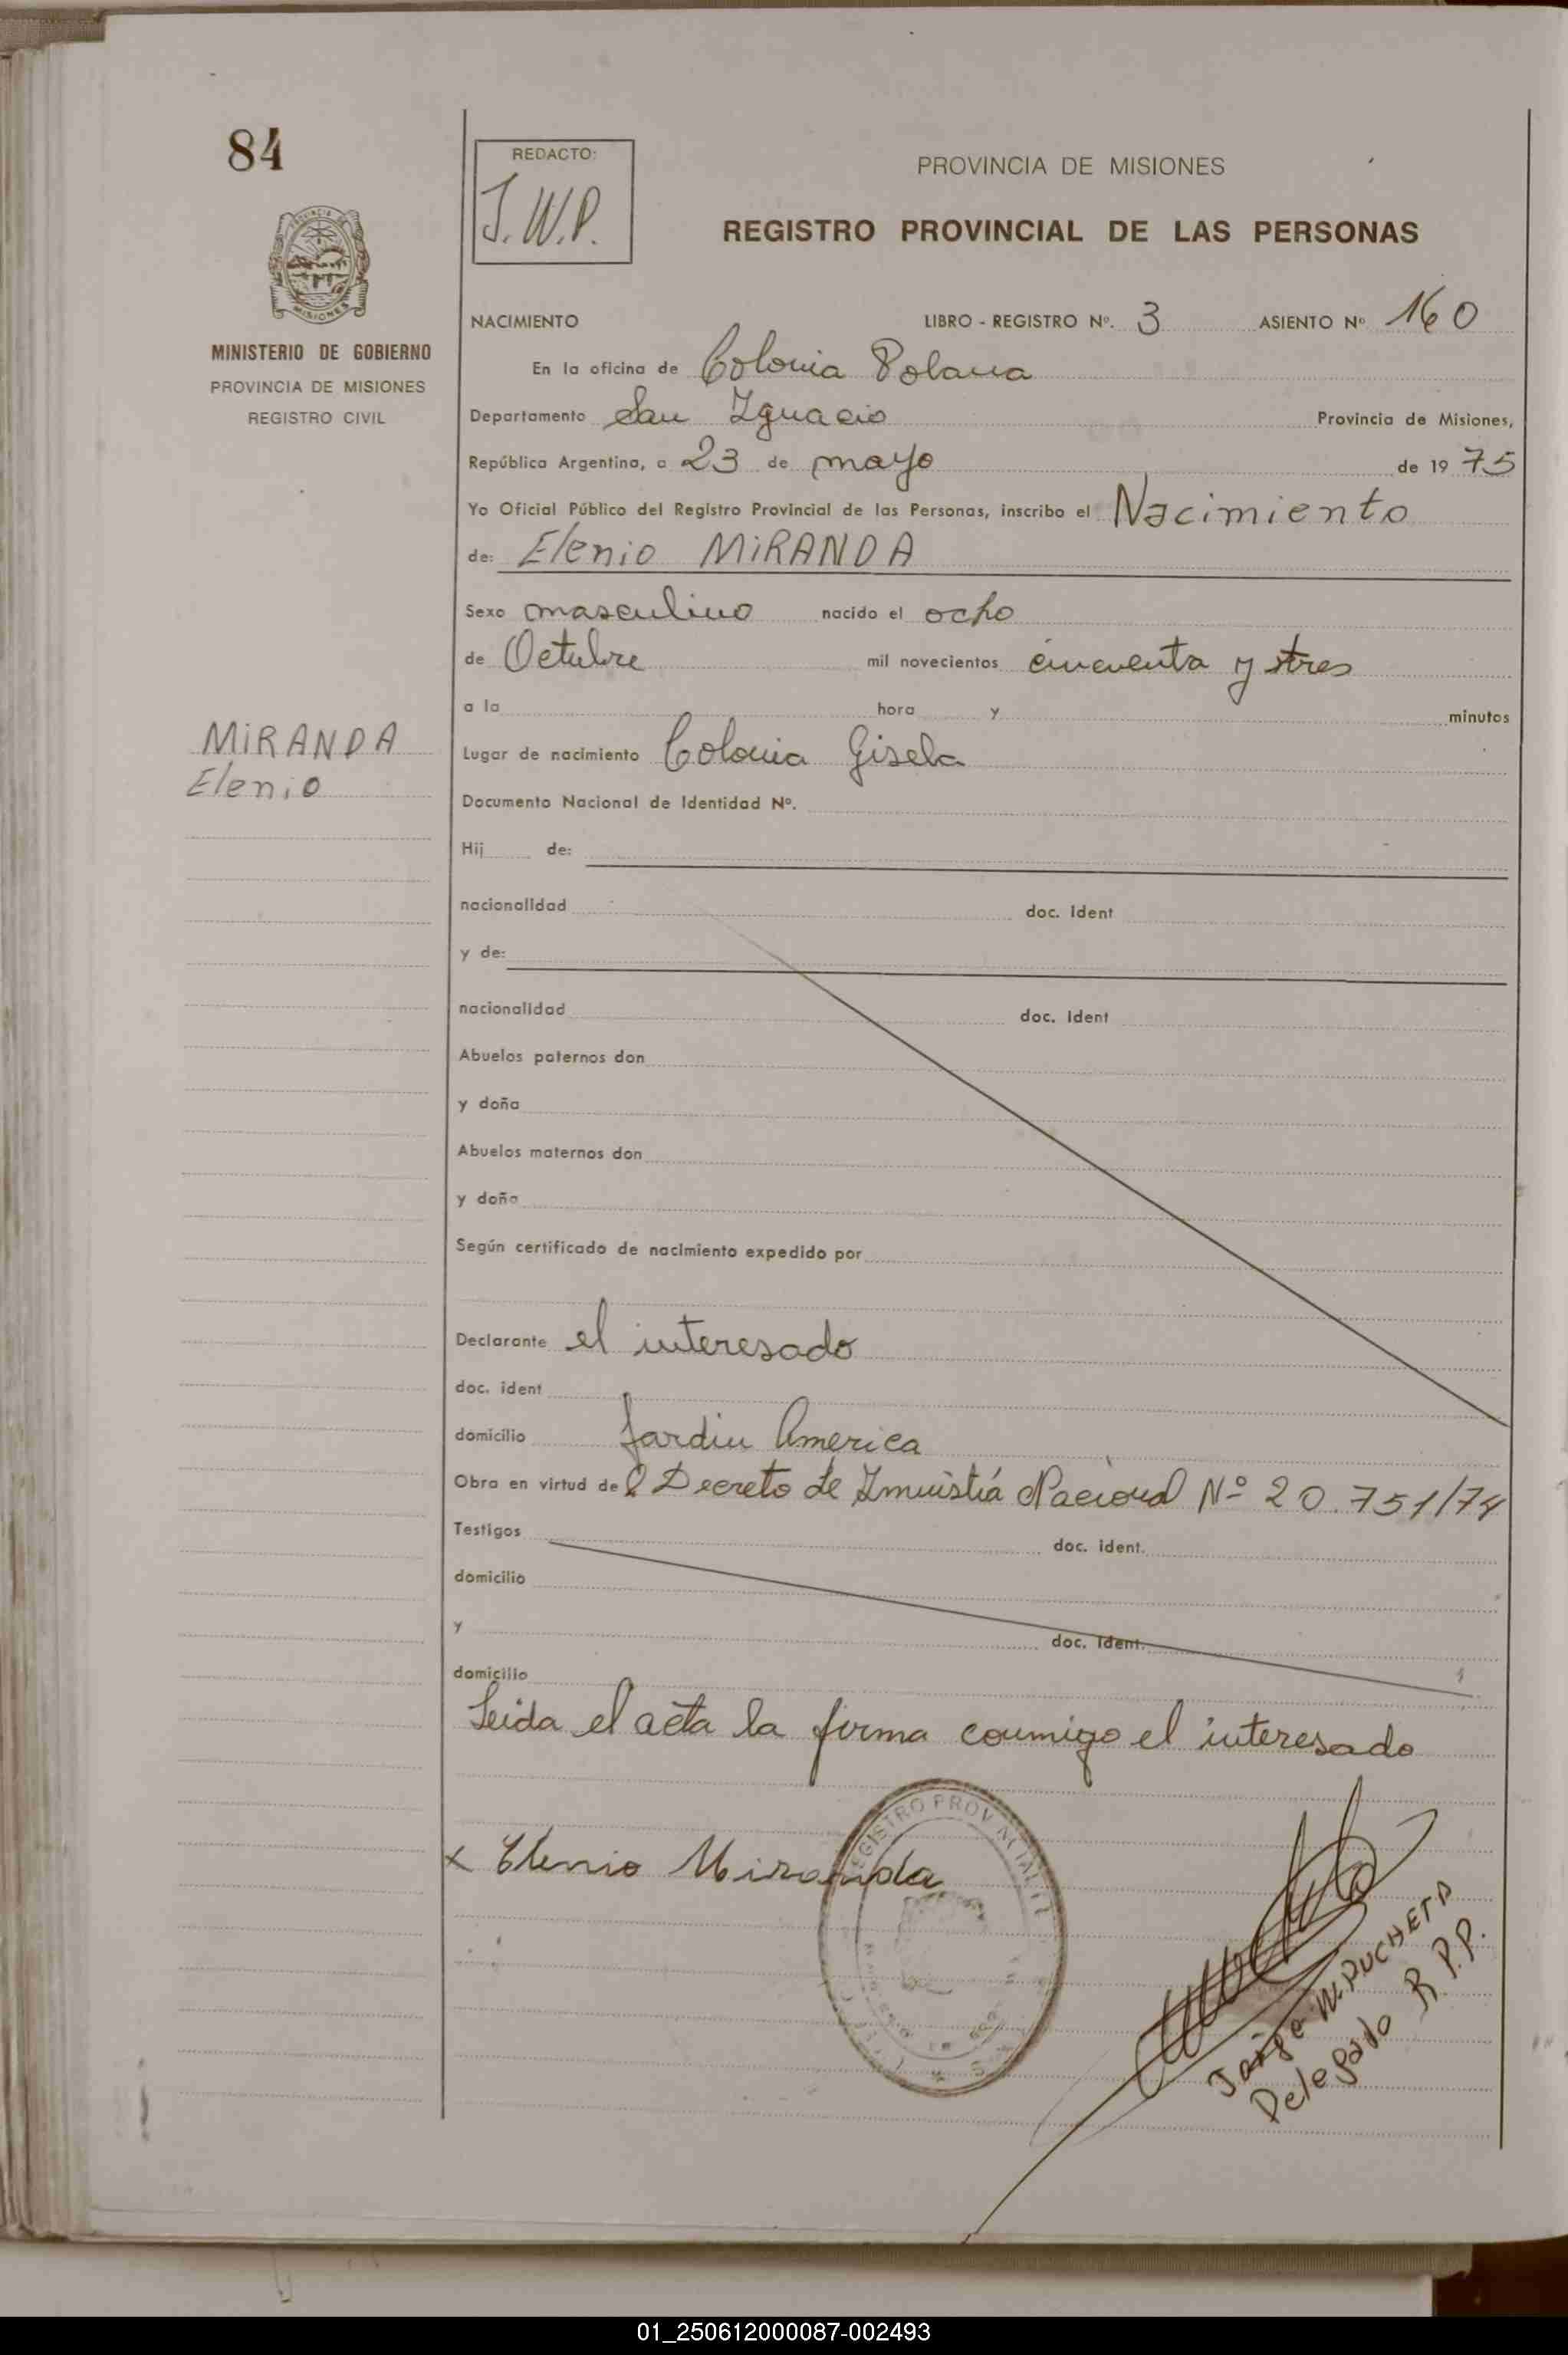 84
REDACTO:
J.W.P.
PROVINCIA DE MISIONES
REGISTRO PROVINCIAL DE LAS PERSONAS
MINISTERIO DE GOBIERNO
PROVINCIA DE MISIONES
REGISTRO CIVIL
NACIMIENTO LIBRO - REGISTRO Nº. 3 ASIENTO Nº 160
En la oficina de Colonia Polana
Departamento San Ignacio Provincia de Misiones,
República Argentina, a 23 de mayo de 1975
Yo Oficial Público del Registro Provincial de las Personas, inscribo el Nacimiento
de: Elenio MiRANDA
Sexo masculino nacido el ocho
de Octubre mil novecientos cincuenta y tres
a la hora y minutos
MiRANDA
Elenio
Lugar de nacimiento Colonia Gisela
Documento Nacional de Identidad Nº.
Hij de:
nacionalidad doc. Ident
y de:
nacionalidad doc. Ident
Abuelos paternos don
y doña
Abuelos maternos don
y doña
Según certificado de nacimiento expedido por
Declarante el interesado
doc. ident
domicilio Jardin America
Obra en virtud del Decreto de Nacional Nº 20.751/74
Testigos doc. ident.
domicilio
y doc. ident.
domicilio
Leida el acta la firma conmigo el interesado
x Elenio Miranda
REGISTRO PROVINCIAL
Jorge W. PUCHETA
Delegado R.P.P.
01_250612000087-002493